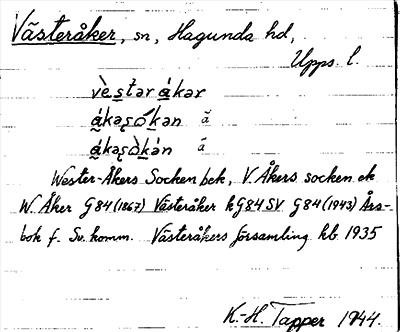 Västeråker, sn, Hagunda hd,
Upps. l.
vèstər ákər
ákəʂókən ă
ákəʂòkə́n ă
Wester-Åkers Socken bek, V. Åkers socken ek
W. Åker G84 (1867) Västeråker k G84 SV G84 (1943) Års-
bok f. Sv. komm. Västeråkers församling kb. 1935
K.-H. Tapper 1944.